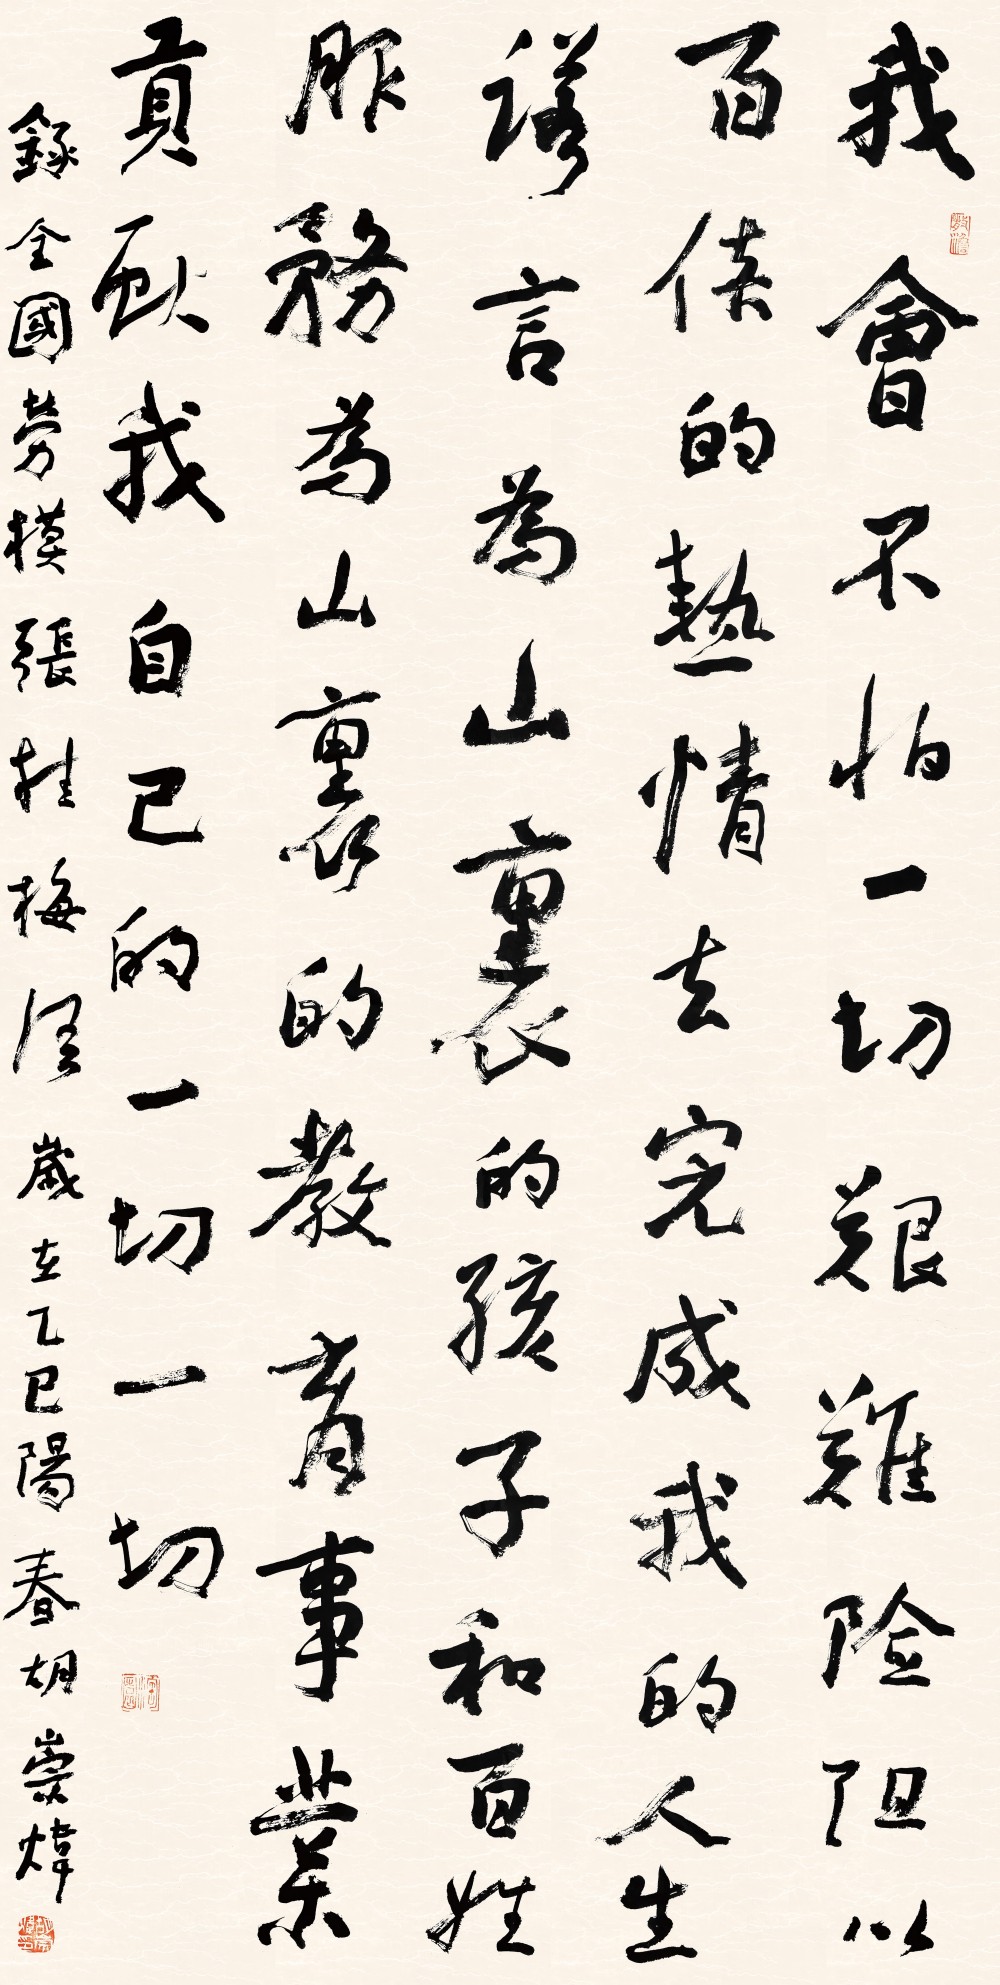 我會不怕一切艱難險阻以
百倍的熱情去完成我的人生
諾言為山裏的孩子和百姓
服務為山裏的教育事業
貢獻我自己的一切一切
錄全國勞模張桂梅語歲在乙巳陽春胡崇煒